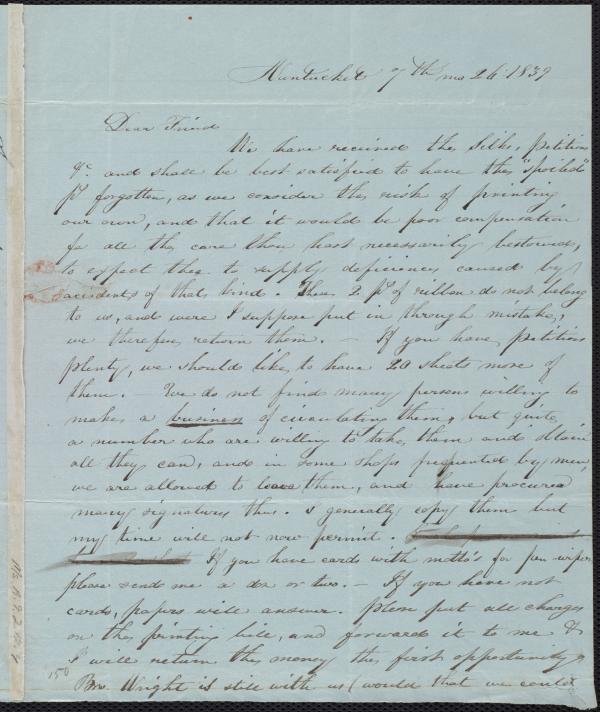 Nantucket 7th mo 26 1839
Dear Friend
We have received the silks, petitions
&c. and shall be best satisfied to have the "spoiled"
pr forgotten, as we consider the risk of printing
our own, and that it would be poor compensation
for all the care thou hast necessarily bestowed,
to expect thee to supply deficiences caused by
accidents of that kind. These 2 ps of ribbon do not belong
to us, and were I suppose put in through mistake,
we therefore, return them. — If you have petitions
plenty, we should like, to have 20 sheets more of
them. — We do not find many persons willing to
make a business of circulating them, but quite
a number who are willing to take, them and obtain
all they can, and in some shops frequented by men,
we are allowed to leave them, and have procured
many signatures thus. I generally copy them but
my time will not now permit.
If you have cards with motto's for pen wipers
please send me a doz or two. — If you have not
cards, papers will answer. Please put all charges
on the printing bill, and forward it to me &
I will return the money the first opportunity
Bro. Wright is still with us (would that we could
150